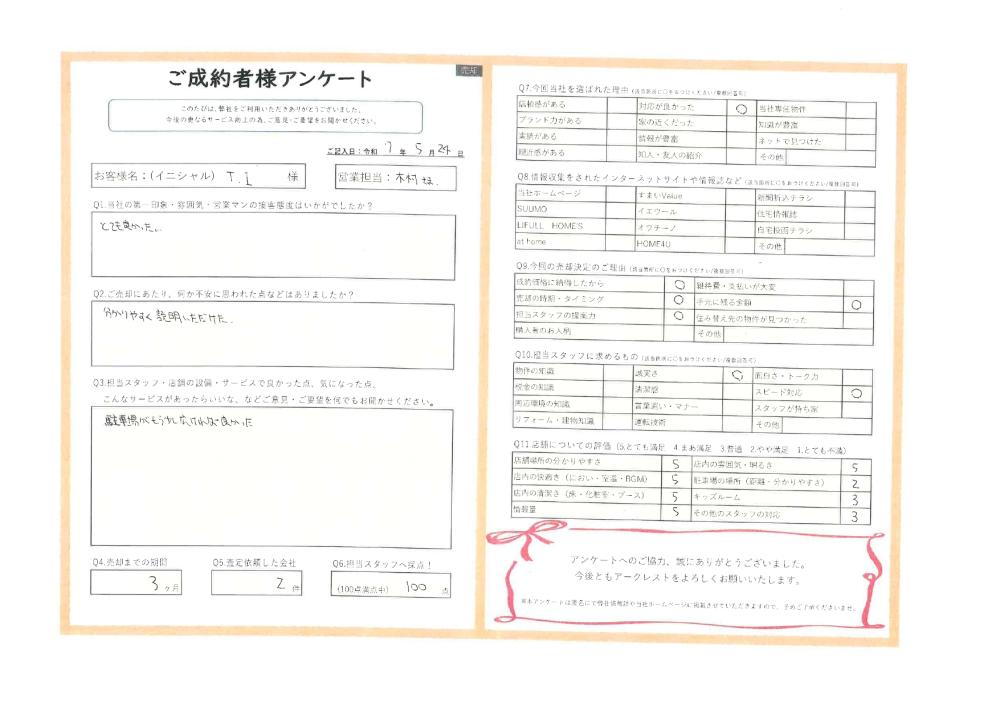 売却
ご成約者様アンケート
このたびは、弊社をご利用いただきありがとうございました。
今後の更なるサービス向上の為、ご意見・ご要望をお聞かせください。
ご記入日：令和 7 年 5 月 24 日
お客様名：(イニシャル) T.I 様
営業担当：木村
Q1.当社の第一印象・雰囲気・営業マンの接客態度はいかがでしたか？
とても良かった。
Q2.ご売却にあたり、何か不安に思われた点などはありましたか？
分かりやすく説明いただけた。
Q3.担当スタッフ・店舗の設備・サービスで良かった点、気になった点、
こんなサービスがあったらいいな、などご意見・ご要望を何でもお聞かせください。
駐車場がもう少し広ければ良かった
Q4.売却までの期間
3 ヶ月
Q5.査定依頼した会社
2 件
Q6.担当スタッフへ採点！
(100点満点中) 100 点
Q7.今回当社を選ばれた理由 (該当箇所に○をおつけください/複数回答可)
信頼感がある 対応が良かった ○ 当社専任物件
ブランド力がある 家の近くだった 知識が豊富
実績がある 情報が豊富 ネットで見つけた
親近感がある 知人・友人の紹介 その他
Q8.情報収集をされたインターネットサイトや情報誌など (該当箇所に○をおつけください/複数回答可)
当社ホームページ すまいValue 新聞折込チラシ
SUUMO イエウール 住宅情報誌
LIFULL HOME'S オウチーノ 自宅投函チラシ
at home HOME4U その他
Q9.今回の売却決定のご理由 (該当箇所に○をおつけください/複数回答可)
成約価格に納得したから ○ 維持費・支払いが大変
売却の時期・タイミング ○ 手元に残る金額 ○
担当スタッフの提案力 ○ 住み替え先の物件が見つかった
購入者のお人柄 その他
Q10.担当スタッフに求めるもの (該当箇所に○をおつけください/複数回答可)
物件の知識 誠実さ ○ 面白さ・トーク力
税金の知識 清潔感 スピード対応 ○
周辺環境の知識 言葉遣い・マナー スタッフが持ち家
リフォーム・建物知識 運転技術 その他
Q11.店舗についての評価 (5.とても満足 4.まあ満足 3.普通 2.やや満足 1.とても不満)
店舗場所の分かりやすさ 5 店内の雰囲気・明るさ 5
店内の快適さ (におい・室温・BGM) 5 駐車場の場所 (距離・分かりやすさ) 2
店内の清潔さ (床・化粧室・ブース) 5 キッズルーム 3
情報量 5 その他のスタッフの対応 3
アンケートへのご協力、誠にありがとうございました。
今後ともアークレストをよろしくお願いいたします。
※本アンケートは匿名にて弊社情報誌や当社ホームページに掲載させていただきますので、予めご了承くださいませ。